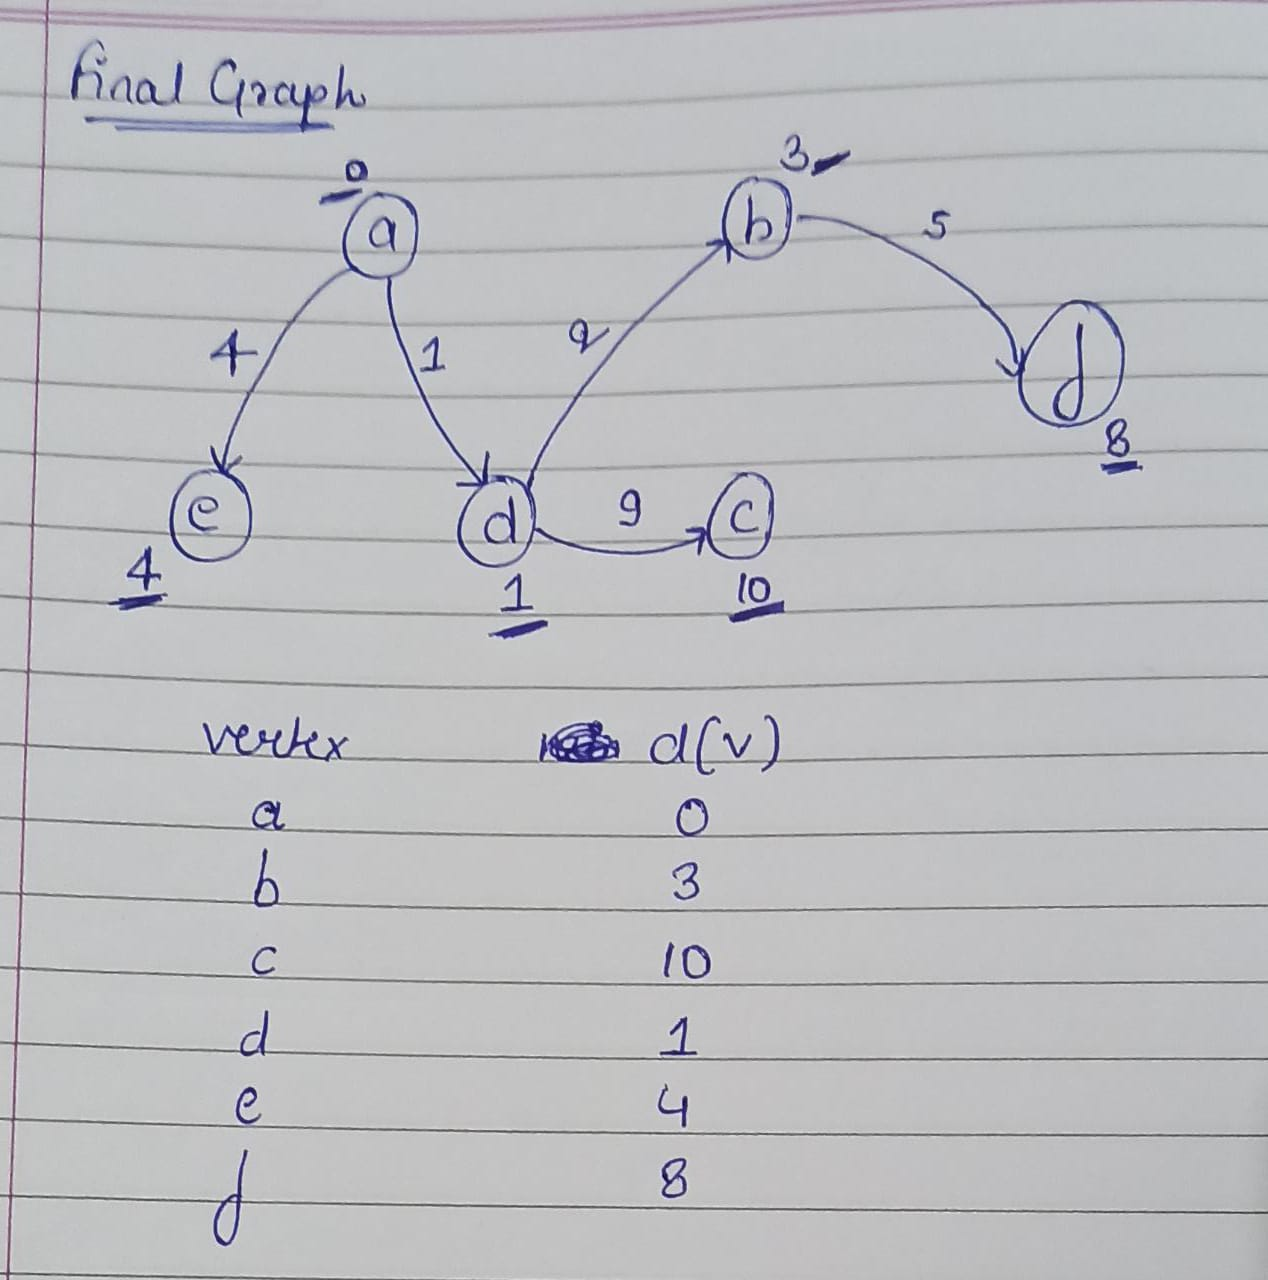 Final Graph
0
3
a
b
5
4
1
2
f
8
e
d
9
c
4
1
10
vertex d(v)
a 0
b 3
c 10
d 1
e 4
f 8